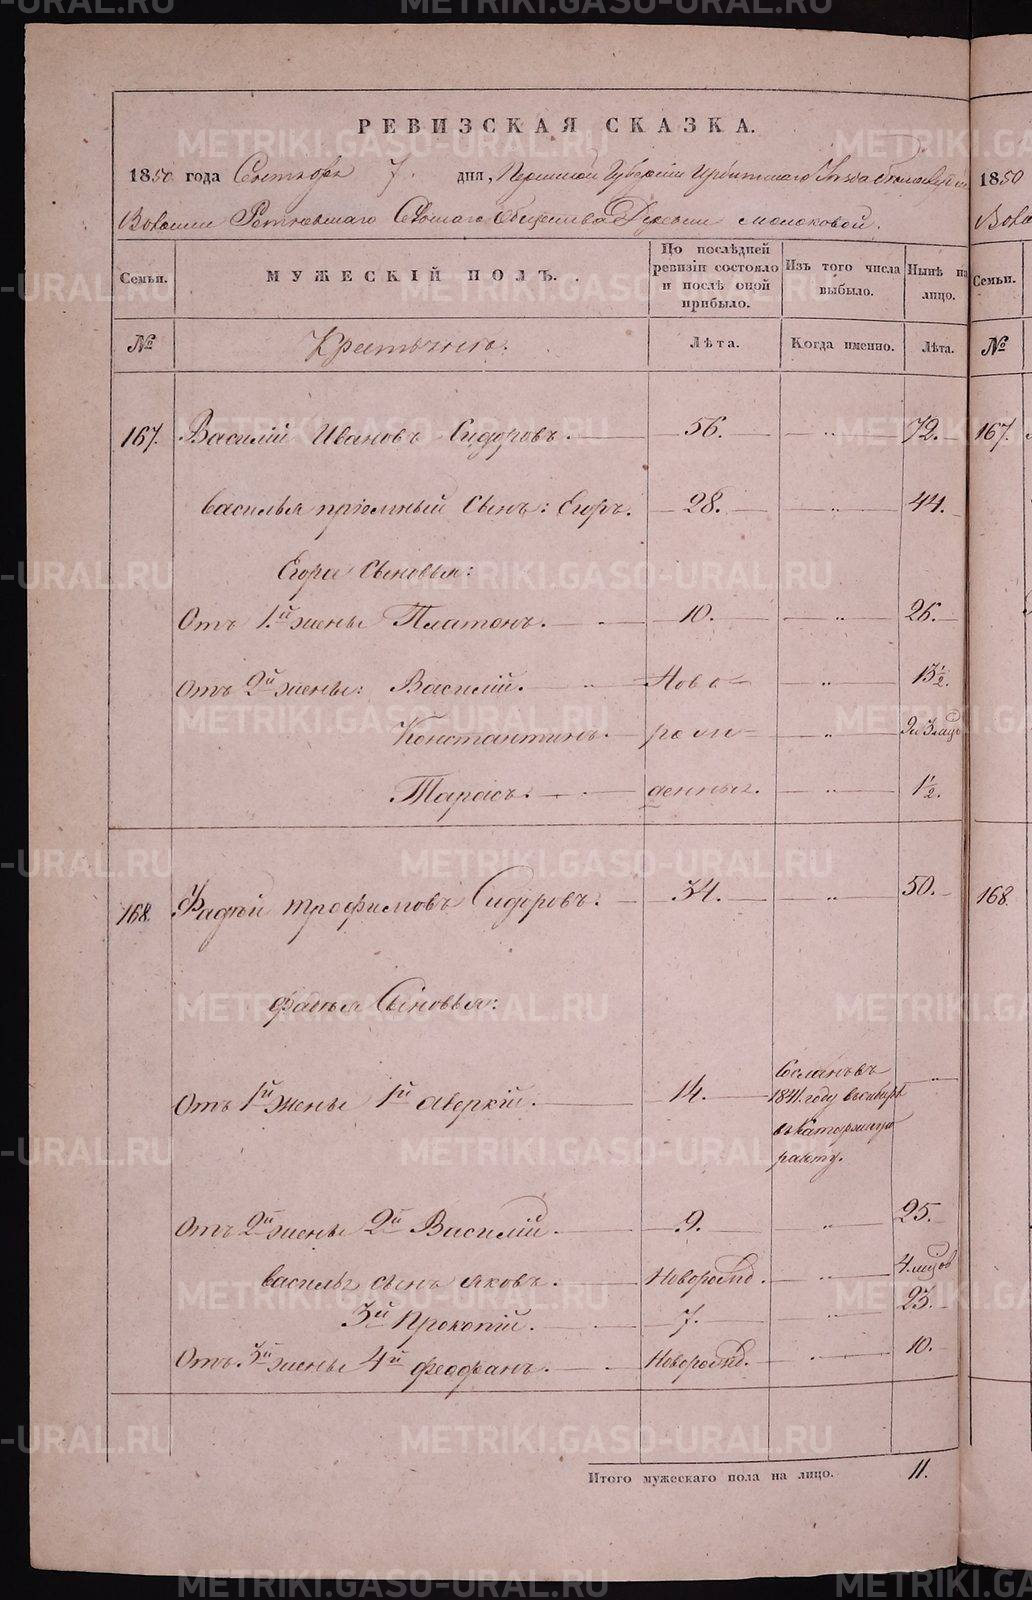 РЕВИЗСКАЯ СКАЗКА.
1850 года Сентября 7. дня, Пермской Губернии Ирбитскаго Уѣзда
Волости Ретневшаго Сельскаго Общества Деревни молоковой.
Семьи. МУЖЕСКІЙ ПОЛЪ. По послѣдней ревизіи состояло и послѣ оной прибыло. Изъ того числа выбыло. Нынѣ на лицо.
№ Крестьяне. Лѣта. Когда именно. Лѣта.
167. Василій Ивановъ Сидоровъ. 56. 72.
Василья пріомный Сынъ: Егоръ. 28. 44.
Егора Сыновья:
Отъ 1.й жены Платонъ. 10. 26.
Отъ 2й жены: Василій. Ново 13½.
Константинъ. рож
Тарасъ. денныя. 1½.
168. Фадѣй трофимовъ Сидоровъ. 34. 50.
Фадѣя Сыновья:
Отъ 1й жены 1й аверкій. 14. Сосланъ въ
1841. году въ сибирь
въ Каторжную
работу.
Отъ 2й жены 2й Василій 9. 25.
Василья сынъ яковъ. Новорожд. 4. мѣсяцов
3й Прокопій. 7. 23.
Отъ. 3й жены 4й феофанъ. Новорожд. 10.
Итого мужескаго пола на лицо. 11.
1850
Воло
Семьи.
№
167.
168.
METRIKI.GASO-URAL.RU